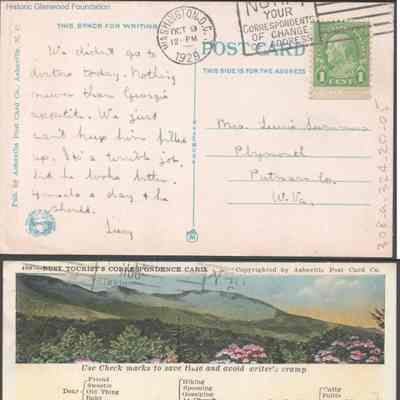 Historic Glenwood Foundation
THIS SPACE FOR WRITING
POST CARD
THIS SIDE IS FOR THE ADDRESS
WASHINGTON, D.C.
OCT 9
12-PM
1929
YOUR
CORRESPONDENTS
OF CHANGE
OF ADDRESS
1 CENT 1
Pub. by Asheville Post Card Co., Asheville, N. C.
We didn't go to
doctors today. Nothing
newer than George's
appetite. We just
can't keep him filled
up. It's a terrible job.
did he looks better.
4 meals a day & he
should.
Mrs. Lewis
Plymouth
Putnam Co
W. Va.
308a-324-20-05
BUSY TOURIST'S CORRESPONDENCE CARD
Copyrighted by Asheville Post Card Co.
Use Check marks to save time and avoid writer's cramp
Dear
Friend
Sweetie
Old Thing
Baby
Hiking
Spooning
Gossiping
Catty